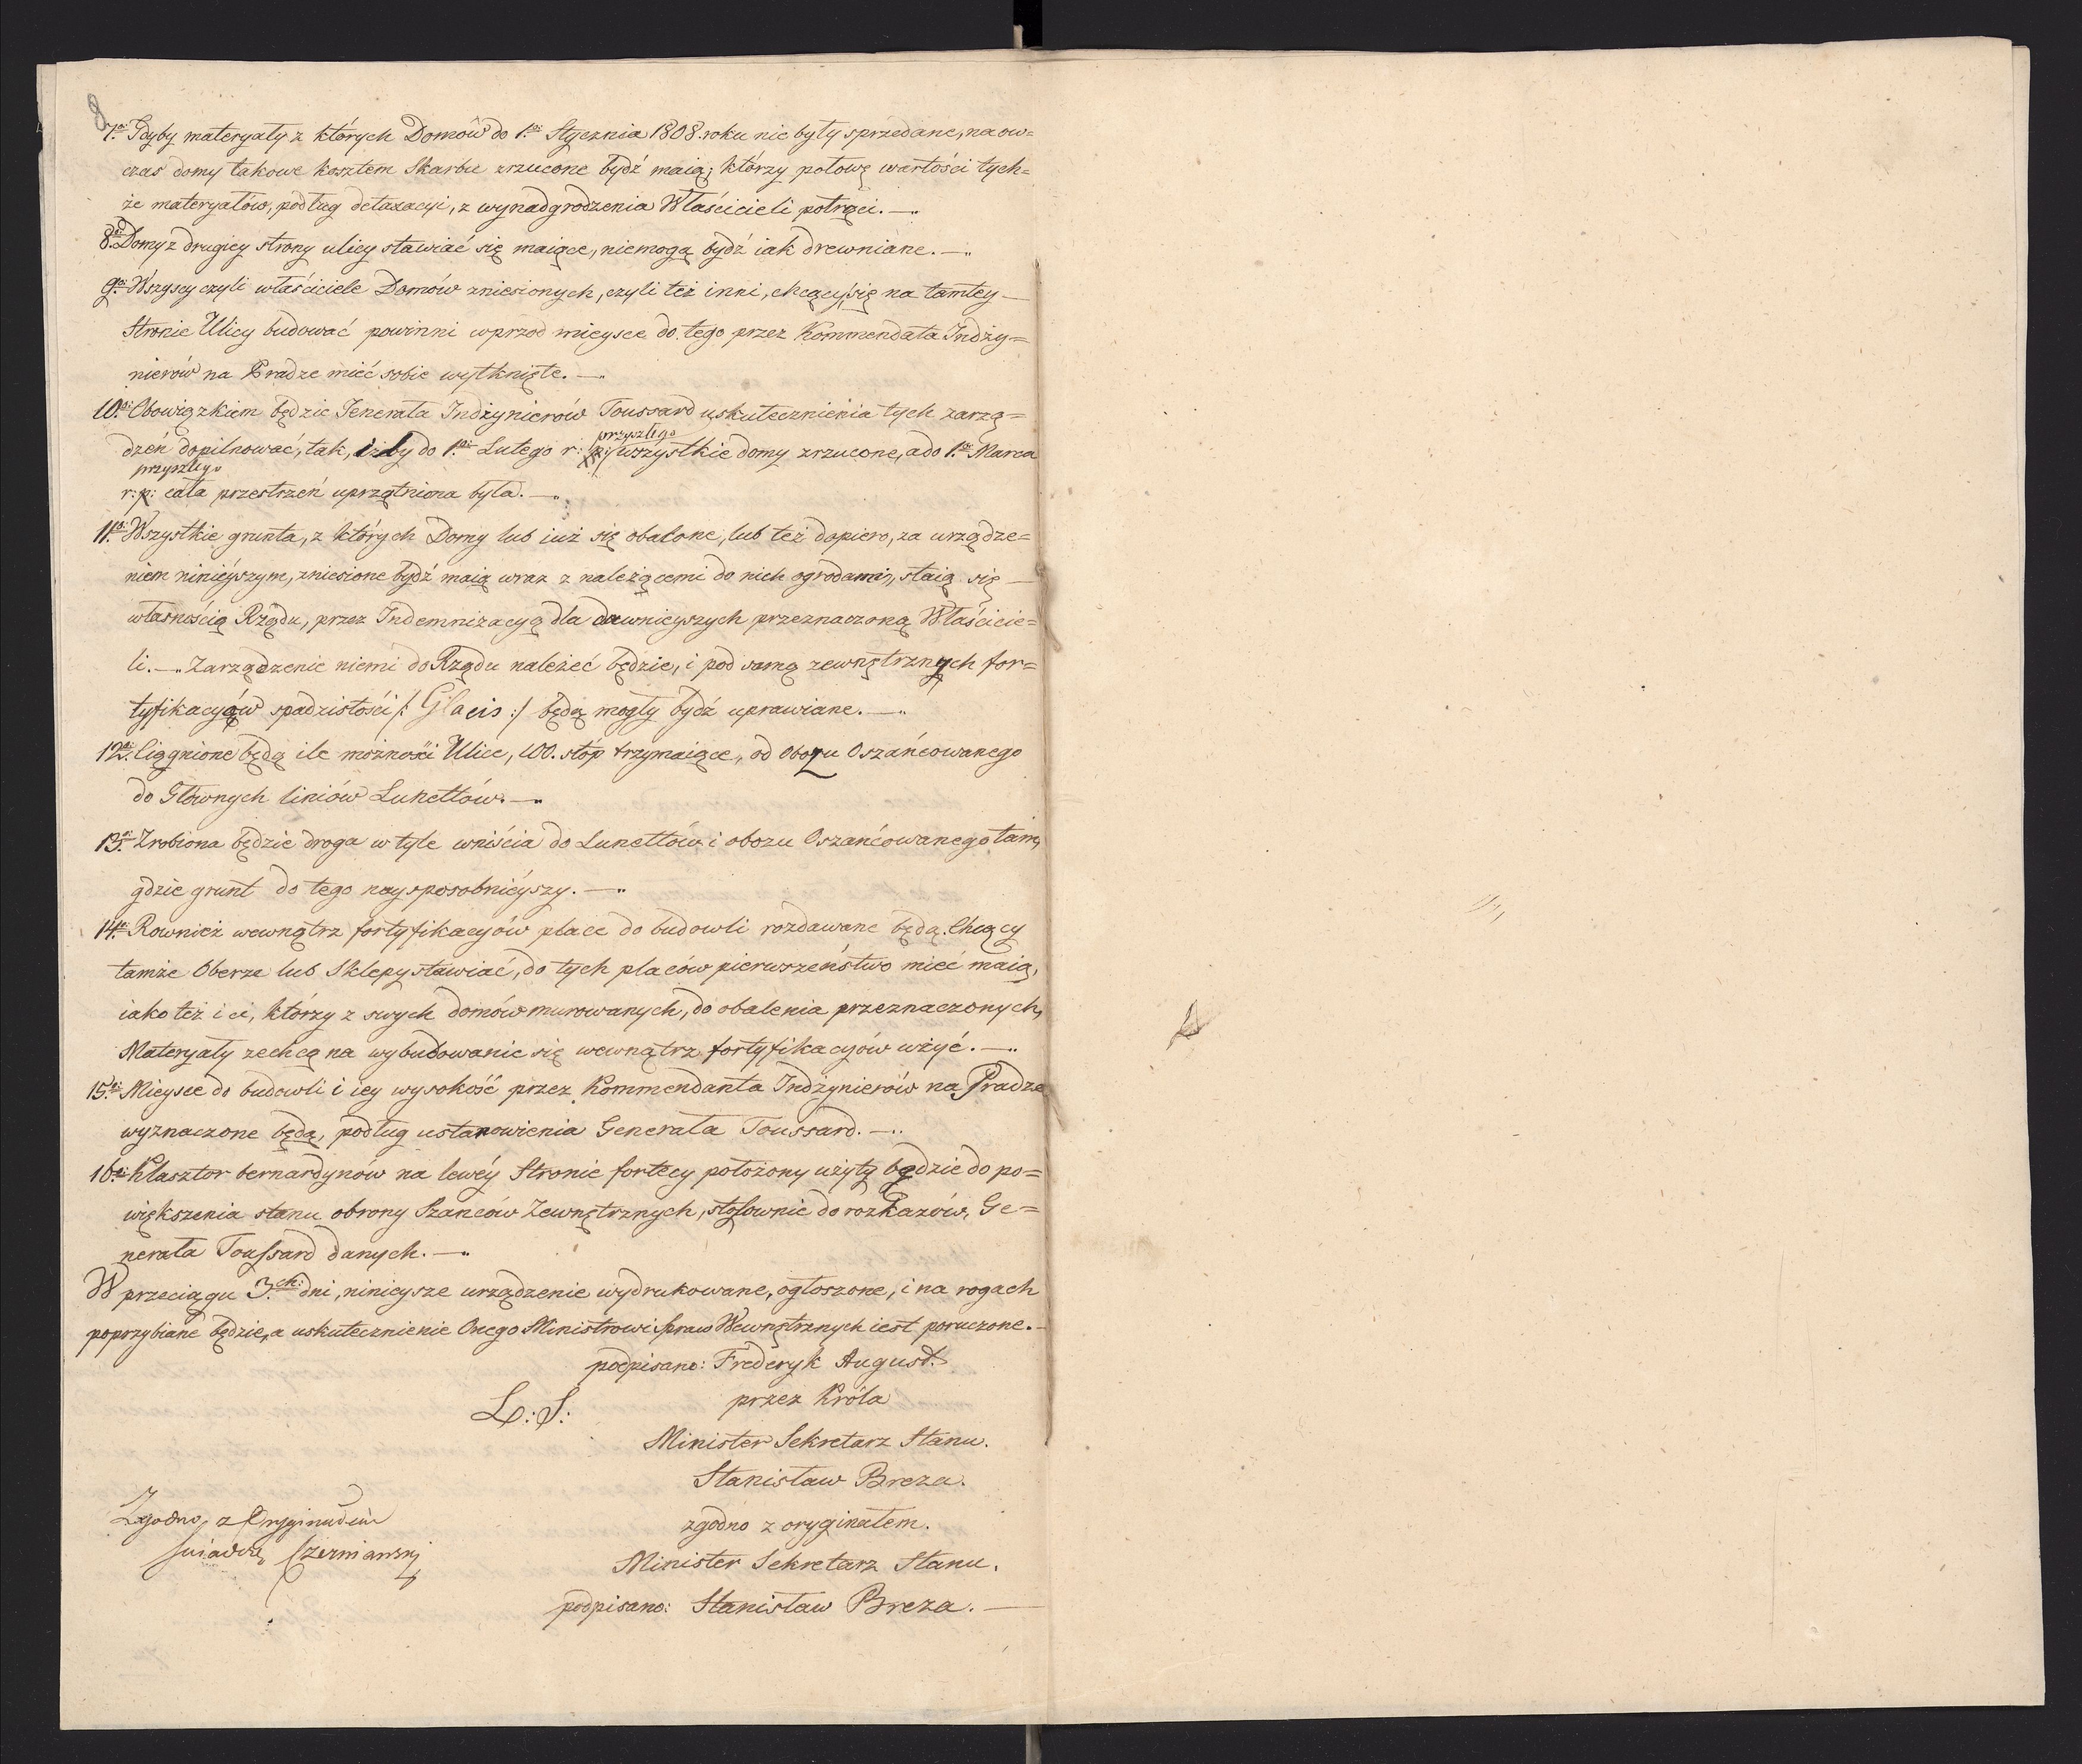 8
7.º Gdyby materyały z których Domów do 1.go Stycznia 1808. roku nie były sprzedane, na ow=
czas domy takowe kosztem Skarbu zrzucone bydź maią; którzy połowę wartości tych=
że materyałów, podług detaxacyi, z wynadgrodzenia Właścicieli potrąci.—„
8.º Domy z drugiey strony ulicy stawiać się maiące, niemogą bydź iak drewniane.—„
9.º Wszyscy czyli właściciele Domów zniesionych, czyli też inni, chcący się na tamtey—
Stronie Ulicy budować powinni wprzod mieysce do tego przez Kommendata Indży=
nierów na Pradze mieć sobie wytknięte.—„
10.º Obowiązkiem będzie Jenerała Indżynierów Toussard uskutecznienia tych zarzą=
przyszłego
dzeń dopilnować, tak, iżby do 1.go Lutego r: p: wszystkie domy zrzucone, a do 1.go Marca
przyszłego
r: p: cała przestrzeń uprzątniona była.—„
11.º Wszystkie grunta, z których Domy lub iuż są obalone, lub też dopiero, za urządze=
niem ninieyszym, zniesione bydź maią wraz z należącemi do nich ogrodami, staią się—
własnością Rządu, przez Indemnizacyą dla dawnieyszych przeznaczoną Właścicie=
li.—„ Zarządzenie niemi do Rządu należeć będzie, i pod samą zewnętrznych for=
tyfikacyów spadzistości /: Glacis :/ będą mogły bydź uprawiane.—„
12.º Ciągnione będą ile możności Ulice, 100. stóp trzymaiące, od obozu Oszańcowanego
do Głównych liniów Lunettów.—„
13.º Zrobiona będzie droga w tyle wniścia do Lunettów i obozu Oszańcowanego tam,
gdzie grunt do tego naysposobnieyszy.—„
14.º Rownież wewnątrz fortyfikacyów place do budowli rozdawane będą. Chcący
tamże Oberze lub Sklepy stawiać, do tych placów pierwszeństwo mieć maią,
iako też i ci, którzy z swych domów murowanych, do obalenia przeznaczonych,
Materyały zechcą na wybudowanie się wewnątrz fortyfikacyów użyć.—„
15.º Mieysce do budowli i iey wysokość przez Kommendanta Indżynierów na Pradze
wyznaczone będą, podług ustanowienia Generała Toussard.—„
16.º Klasztor bernardynów na lewey Stronie fortecy położony użyty będzie do po=
większenia stanu obrony Szanców Zewnętrznych, stosownie do rozkazów, Ge=
nerała Toussard danych.—„
W przeciągu 3.ch dni, ninieysze urządzenie wydrukowane, ogłoszone, i na rogach
poprzybiane będzie, a uskutecznienie Onego Ministrowi Spraw Wewnętrznych iest poruczone.—
podpisano: Frederyk August.
L: S: przez Króla
Minister Sekretarz Stanu.
Stanisław Breza.
Zgodno z Oryginałem zgodno z oryginałem.
świadczę Czerniawski Minister Sekretarz Stanu.
podpisano: Stanisław Breza.—